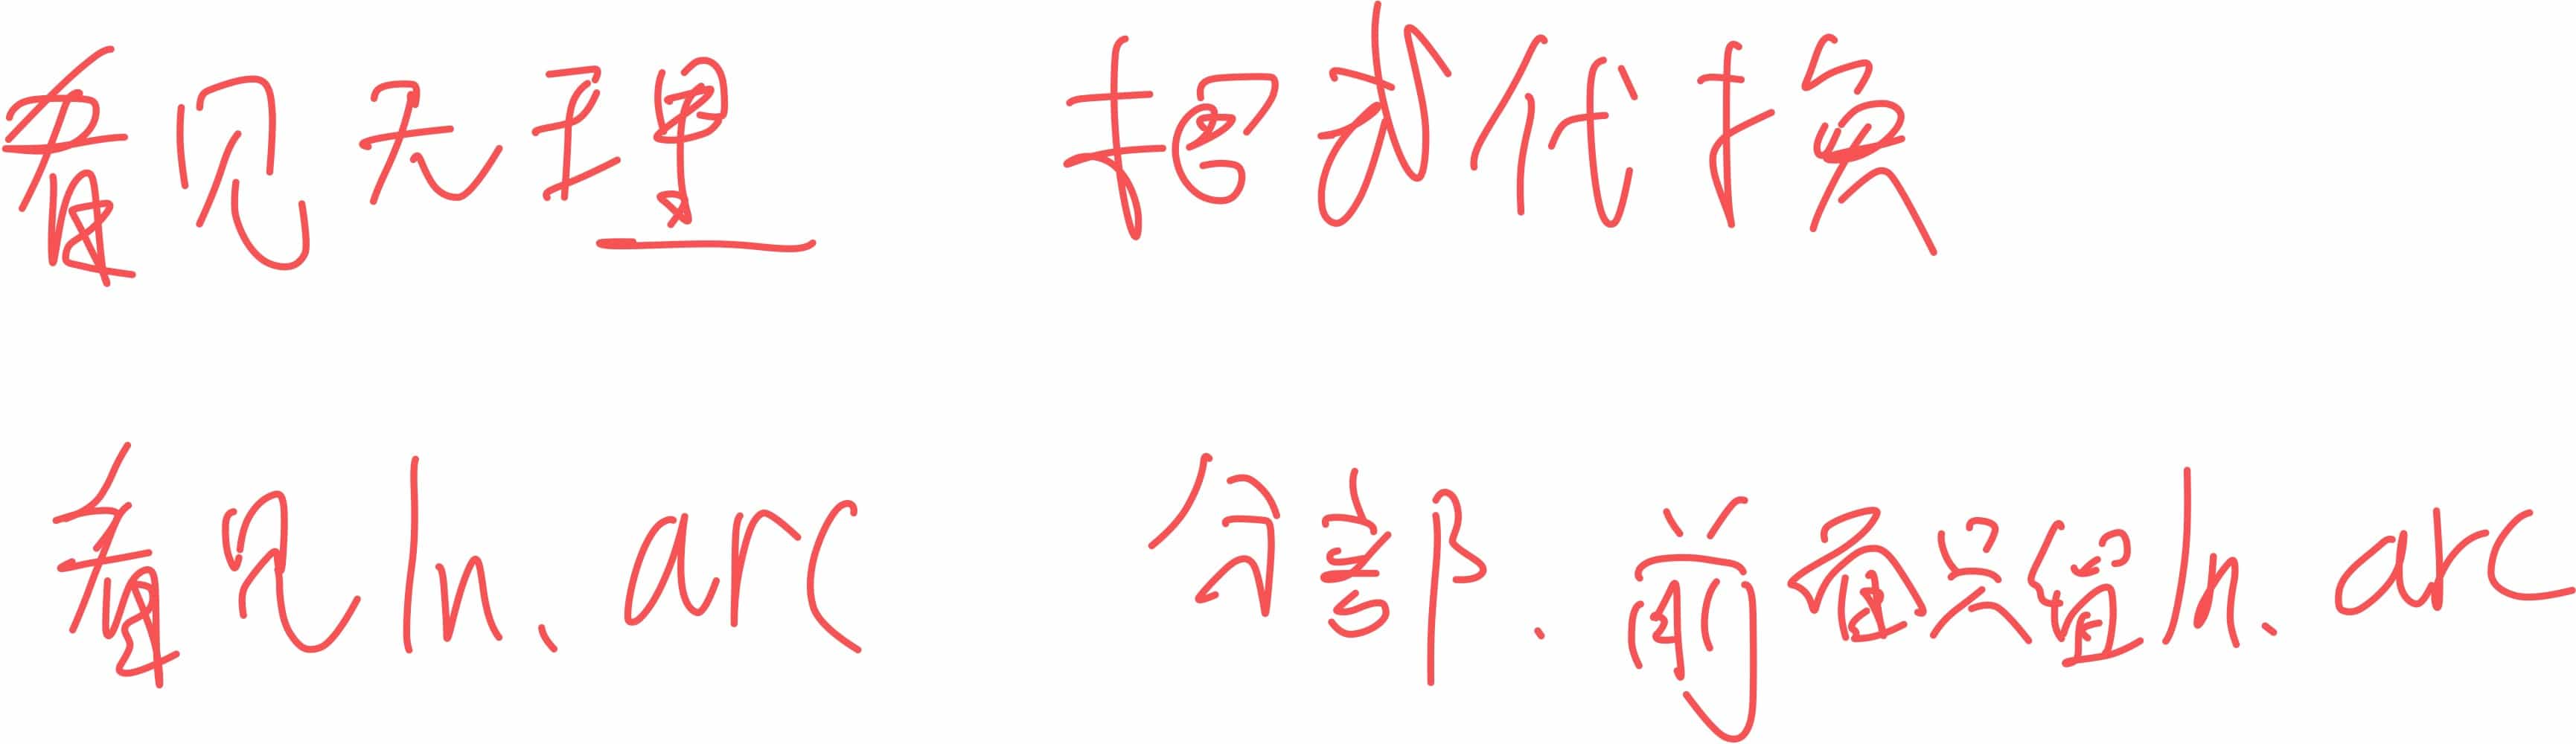 看见无理 把我代换
看见ln、arc 分部、前面只留ln、arc